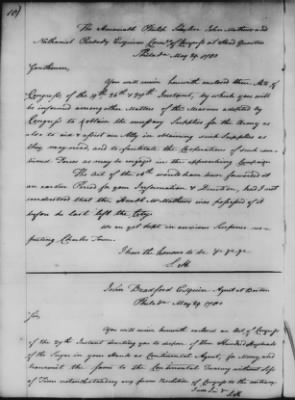 The Honourable Philip Schuyler John Mathews and
Nathaniel Peabody Esquires Commee of Congress at Head Quarters
Philada May 29. 1780
Gentlemen,
You will receive herewith enclosed three Acts of
Congress of the 19th 26th & 29th Instant, by which you will
be informed among other Matters of the Measures adopted by
Congress to obtain the necessary Supplies for the Army as
also to aid & assist our Ally in obtaining such Supplies as
they may need, and to facilitate the Operations of such
Forces as may be engaged in the approaching Campaign
The Act of the would have been forwarded at
an earlier Period for your Information & Direction, had I not
understood that the Honble Mr Mathews was possessed of it
before he last left the City.
We are yet kept in anxious Suspense
respecting Charles Town.
I have the honour to be &c &c &c
S. H.
John Bradford Esquire Agent at Boston
Philada May 29 1780
Sir,
You will receive herewith enclosed an Act of Congress
of the 27th Instant directing you to dispose of Hundred Hogsheads
of the Sugar in your Hands as Continental Agent, for Money and
transmit the same to the Continental Treasury without loss
of Time notwithstanding any former Resolution of Congress to the contrary
I am Sir &c
S. H.